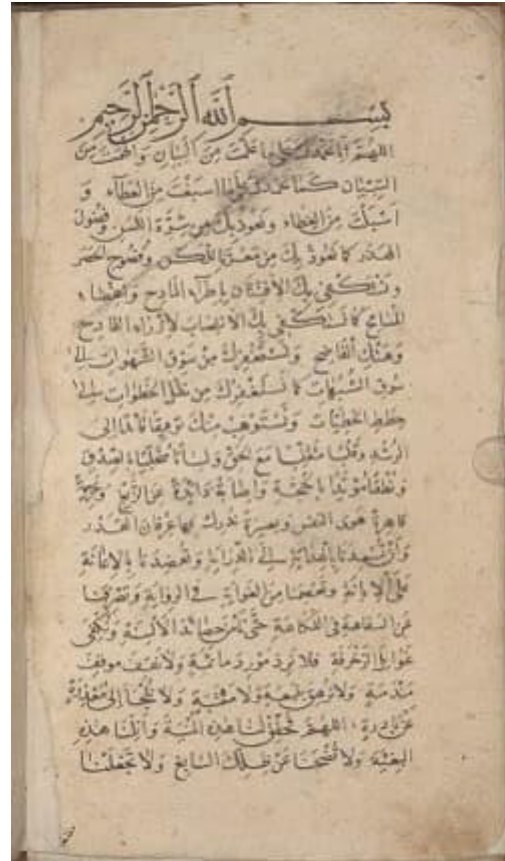 بسم الله الرحمن الرحيم
اللهم انا نحمدك على ما علمت من البيان والهمت من
التبيان كما نحمدك على ما اسبغت من العطاء و
اسبلت من الغطاء ونعوذ بك من شرة اللسن وفضول
الهذر كما نعوذ بك من معرة اللكن وفضوح الحصر
ونستكفي بك الافتتان باطراء المادح واغضاء
المسامح كما نستكفي بك الانتصاب لازراء القادح
وهتك الفاضح ونستغفرك من سوق الشهوات الى
سوق الشبهات كما نستغفرك من نقل الخطوات الى
خطط الخطيات ونستوهب منك توفيقا قائدا الى
الرشد وقلبا متقلبا مع الحق ولسانا متحليا بالصدق
ونطقا مؤيدا بالحجة واصابة ذائدة عن الزيغ وعزيمة
قاهرة هوى النفس وبصيرة ندرك بها عرفان القدر
وان تسعدنا بالهداية الى الدراية وتعضدنا بالاعانة
على الابانة وتعصمنا من الغواية في الرواية وتصرفنا
عن السفاهة في الفكاهة حتى نامن حصائد الالسنة ونكفى
غوايل الزخرفة فلا نرد مورد ماثمة ولا نقف موقف
مندمة ولا نرهق بتبعة ولا معتبة ولا نلجا الى معذرة
عن بادرة اللهم فحقق لنا هذه المنية وانلنا هذه
البغية ولا تضحنا عن ظلك السابغ ولا تجعلنا